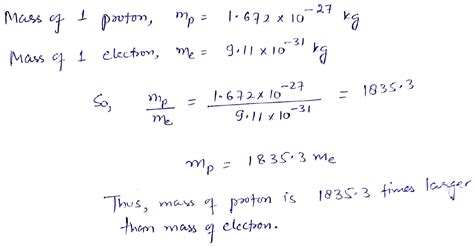 Mass of 1 proton, mp = 1.672 × 10⁻²⁷ kg
Mass of 1 electron, me = 9.11 × 10⁻³¹ kg
So, mp/me = 1.672 × 10⁻²⁷ / 9.11 × 10⁻³¹ = 1835.3
mp = 1835.3 me
Thus, mass of proton is 1835.3 times larger
than mass of electron.